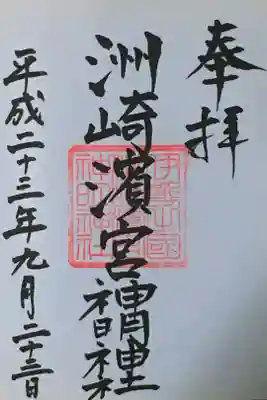 奉拝
洲崎濱宮神明神社
平成二十三年九月二十三日
神明神社